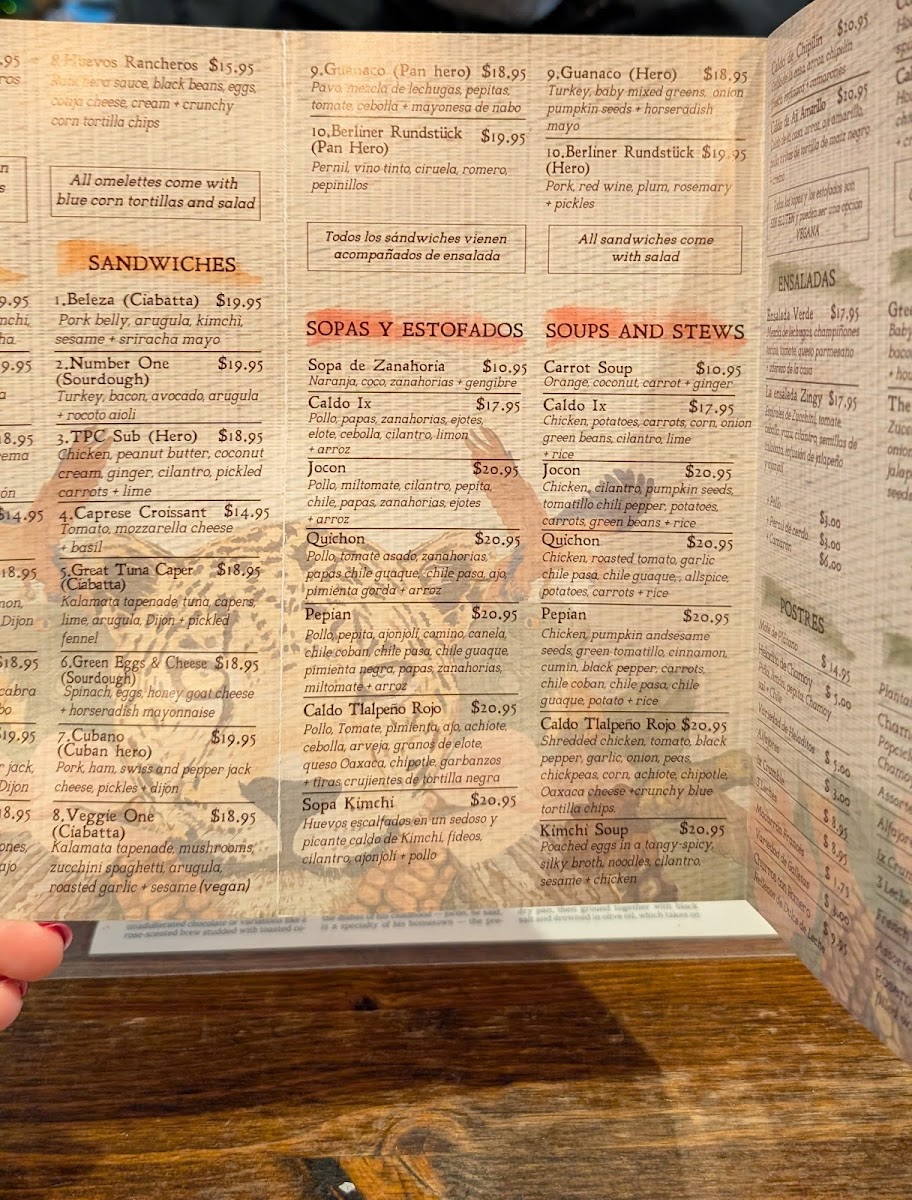 8.Huevos Rancheros $15.95
Ranchero sauce, black beans, eggs,
cotija cheese, cream + crunchy
corn tortilla chips
All omelettes come with
blue corn tortillas and salad
SANDWICHES
1.Beleza (Ciabatta) $19.95
Pork belly, arugula, kimchi,
sesame + sriracha mayo
2.Number One $19.95
(Sourdough)
Turkey, bacon, avocado, arugula
+ rocoto aioli
3.TPC Sub (Hero) $18.95
Chicken, peanut butter, coconut
cream, ginger, cilantro, pickled
carrots + lime
4.Caprese Croissant $14.95
Tomato, mozzarella cheese
+ basil
5.Great Tuna Caper $18.95
(Ciabatta)
Kalamata tapenade, tuna, capers,
lime, arugula, Dijon + pickled
fennel
6.Green Eggs & Cheese $18.95
(Sourdough)
Spinach, eggs, honey goat cheese
+ horseradish mayonnaise
7.Cubano $19.95
(Cuban hero)
Pork, ham, swiss and pepper jack
cheese, pickles + dijon
8.Veggie One $18.95
(Ciabatta)
Kalamata tapenade, mushrooms,
zucchini spaghetti, arugula,
roasted garlic + sesame (vegan)
9.Guanaco (Pan hero) $18.95
Pavo, mezcla de lechugas, pepitas,
tomate, cebolla + mayonesa de nabo
10.Berliner Rundstück $19.95
(Pan Hero)
Pernil, vino tinto, ciruela, romero,
pepinillos
Todos los sándwiches vienen
acompañados de ensalada
SOPAS Y ESTOFADOS
Sopa de Zanahoria $10.95
Naranja, coco, zanahorias + gengibre
Caldo Ix $17.95
Pollo, papas, zanahorias, ejotes,
elote, cebolla, cilantro, limon
+ arroz
Jocon $20.95
Pollo, miltomate, cilantro, pepita,
chile, papas, zanahorias, ejotes
+ arroz
Quichon $20.95
Pollo, tomate asado, zanahorias,
papas chile guaque, chile pasa, ajo,
pimienta gorda + arroz
Pepian $20.95
Pollo, pepita, ajonjolí, camino, canela,
chile coban, chile pasa, chile guaque,
pimienta negra, papas, zanahorias,
miltomate + arroz
Caldo Tlalpeño Rojo $20.95
Pollo, Tomate, pimienta, ajo, achiote,
cebolla, arveja, granos de elote,
queso Oaxaca, chipotle, garbanzos
+ tiras crujientes de tortilla negra
Sopa Kimchi $20.95
Huevos escalfados en un sedoso y
picante caldo de Kimchi, fideos,
cilantro, ajonjoli + pollo
9.Guanaco (Hero) $18.95
Turkey, baby mixed greens, onion
pumpkin seeds + horseradish
mayo
10.Berliner Rundstück $19.95
(Hero)
Pork, red wine, plum, rosemary
+ pickles
All sandwiches come
with salad
SOUPS AND STEWS
Carrot Soup $10.95
Orange, coconut, carrot + ginger
Caldo Ix $17.95
Chicken, potatoes, carrots, corn, onion
green beans, cilantro, lime
+ rice
Jocon $20.95
Chicken, cilantro, pumpkin seeds,
tomatillo chili pepper, potatoes,
carrots, green beans + rice
Quichon $20.95
Chicken, roasted tomato, garlic
chile pasa, chile guaque, , allspice,
potatoes, carrots + rice
Pepian $20.95
Chicken, pumpkin andsesame
seeds, green tomatillo, cinnamon,
cumin, black pepper, carrots,
chile coban, chile pasa, chile
guaque, potato + rice
Caldo Tlalpeño Rojo $20.95
Shredded chicken, tomato, black
pepper, garlic, onion, peas,
chickpeas, corn, achiote, chipotle,
Oaxaca cheese +crunchy blue
tortilla chips.
Kimchi Soup $20.95
Poached eggs in a tangy-spicy,
silky broth, noodles, cilantro,
sesame + chicken
Caldo de Chipilin $20.95
Caldo de Ají Amarillo $20.95
Todas las sopas y los estofados son
SIN GLUTEN y pueden ser una opción
VEGANA
ENSALADAS
Ensalada Verde $17.95
Mezcla de lechugas, champiñones
+ aderezo de la casa
La ensalada Zingy $17.95
Espirales de Zucchini, tomate,
+ Pollo $5.00
+ Pernil de cerdo $5.00
+ Camarón $6.00
POSTRES
Mole de Plátano $14.95
Heladito de Chamoy $5.00
Piña, limón, pepita, Chamoy
sal + Chile
Variedad de Heladitos $5.00
Alfajores $3.00
Ix Crumble $8.95
3 Leches $8.95
Macarrón Francés $1.75
Variedad de Galletas $3.00
Churros con Romero $9.95